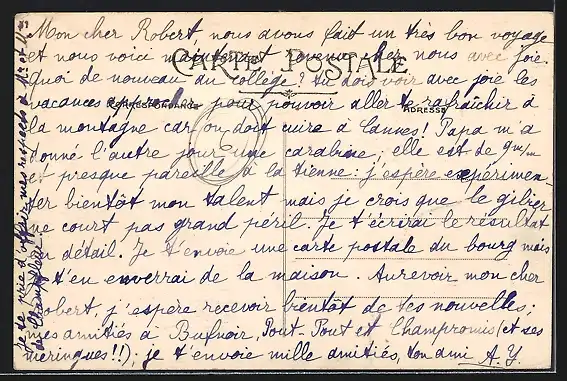 Mon cher Robert, nous avons fait un très bon voyage
et nous voici maintenant revenu chez nous avec joie.
CARTE POSTALE
Quoi de nouveau au collège? tu dois voir avec joie les
vacances approcher pour pouvoir aller te rafraîchir à
CORRESPONDANCE
ADRESSE
la montagne car on doit cuire à Cannes! Papa m'a
donné l'autre jour une carabine, elle est de 9m/m
et presque pareille à la tienne: j'espère expérimen-
ter bientôt mon talent mais je crois que le gibier
ne court pas grand péril. Je t'écrirai le résultat
en détail. Je t'envoie une carte postale du bourg mais
t'en enverrai de la maison. Aurevoir mon cher
Robert, j'espère recevoir bientôt de tes nouvelles;
mes amitiés à Bufnoir, Pont-Pont et Champromis (et ses
meringues!!); je t'envoie mille amitiés, ton ami A.Y.
je te prie d'offrir mes respects à Mr et Mme
de